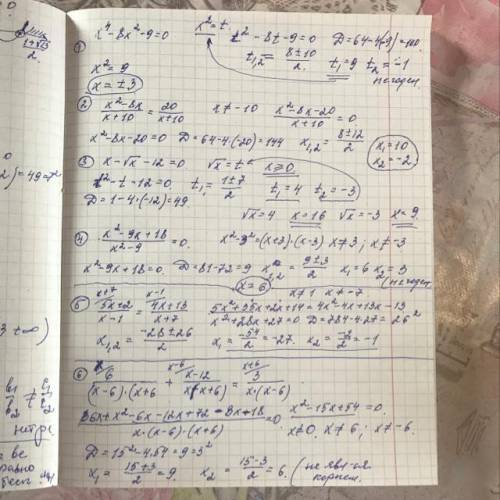 ① x⁴-8x²-9=0 x²=t t²-8t-9=0 D=64-4(-9)=100
t₁,₂= (8±10)/2. t₁=9 t₂=-1
x²=9
x=±3
② (x²-8x)/(x+10) = 20/(x+10) x≠-10 (x²-8x-20)/(x+10)=0.
x²-8x-20=0 D=64-4·(-20)=144 x₁,₂=(8±12)/2
x₁=10
x₂=-2.
③ x-√x-12=0 √x=t x⩾0
t²-t-12=0. t₁=(1±7)/2 t₁=4 t₂=-3
D=1-4·(-12)=49.
√x=4 x=16 √x=-3 x=9.
④ (x²-9x+18)/(x²-9)=0. x²-3²=(x+3)·(x-3) x≠3; x≠-3
x²-9x+18=0. D=81-72=9 x₁,₂=(9±3)/2 x₁=6 x₂=3
x=6
⑤ (5x+2)/(x-1) = (4x+13)/(x+7) x≠1 x≠-7
5x²+35x+2x+14=4x²-4x+13x-13
x²+28x+27=0 D=784-4·27=26²
x₁,₂=(-28±26)/2 x₁=-54/2=-27. x₂=-2/2=-1
⑥ 6/((x-6)·(x+6)) + (x-12)/(x(x+6)) = 3/(x·(x-6))
x²-15x+54=0.
x≠0. x≠6; x≠-6.
D=15²-4·54=9=3²
x₁=(15+3)/2=9. x₂=(15-3)/2=6. (не явл-ся
корнем.